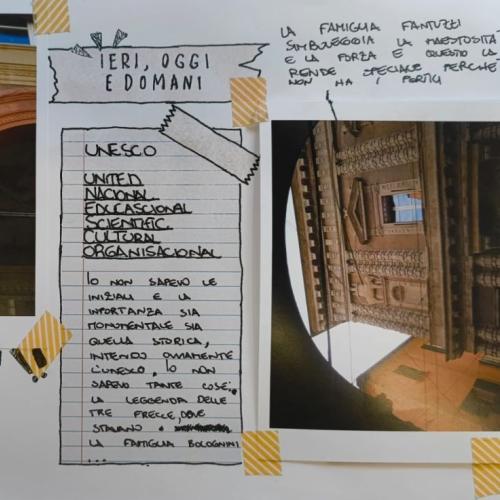 IERI, OGGI
E DOMANI
LA FAMIGLIA FANTUZZI
SIMBOLEGGIA LA MAESTOSITÀ
E LA FORZA E QUESTO LA
RENDE SPECIALE PERCHÈ
NON HA I PORTICI
UNESCO
UNITED
NACIONAL
EDUCASCIONAL
SCIENTIFIC
CULTURAL
ORGANISACIONAL
IO NON SAPEVO LE
INIZIALI E LA
INPORTANZA SIA
MONUMENTALE SIA
QUELLA STORICA,
INTENDO OVVIAMENTE
L'UNESCO, IO NON
SAPEVO TANTE COSE:
LA LEGGENDA DELLE
TRE FRECCE, DOVE
STAVANO
LA FAMIGLIA BOLOGNINI
...